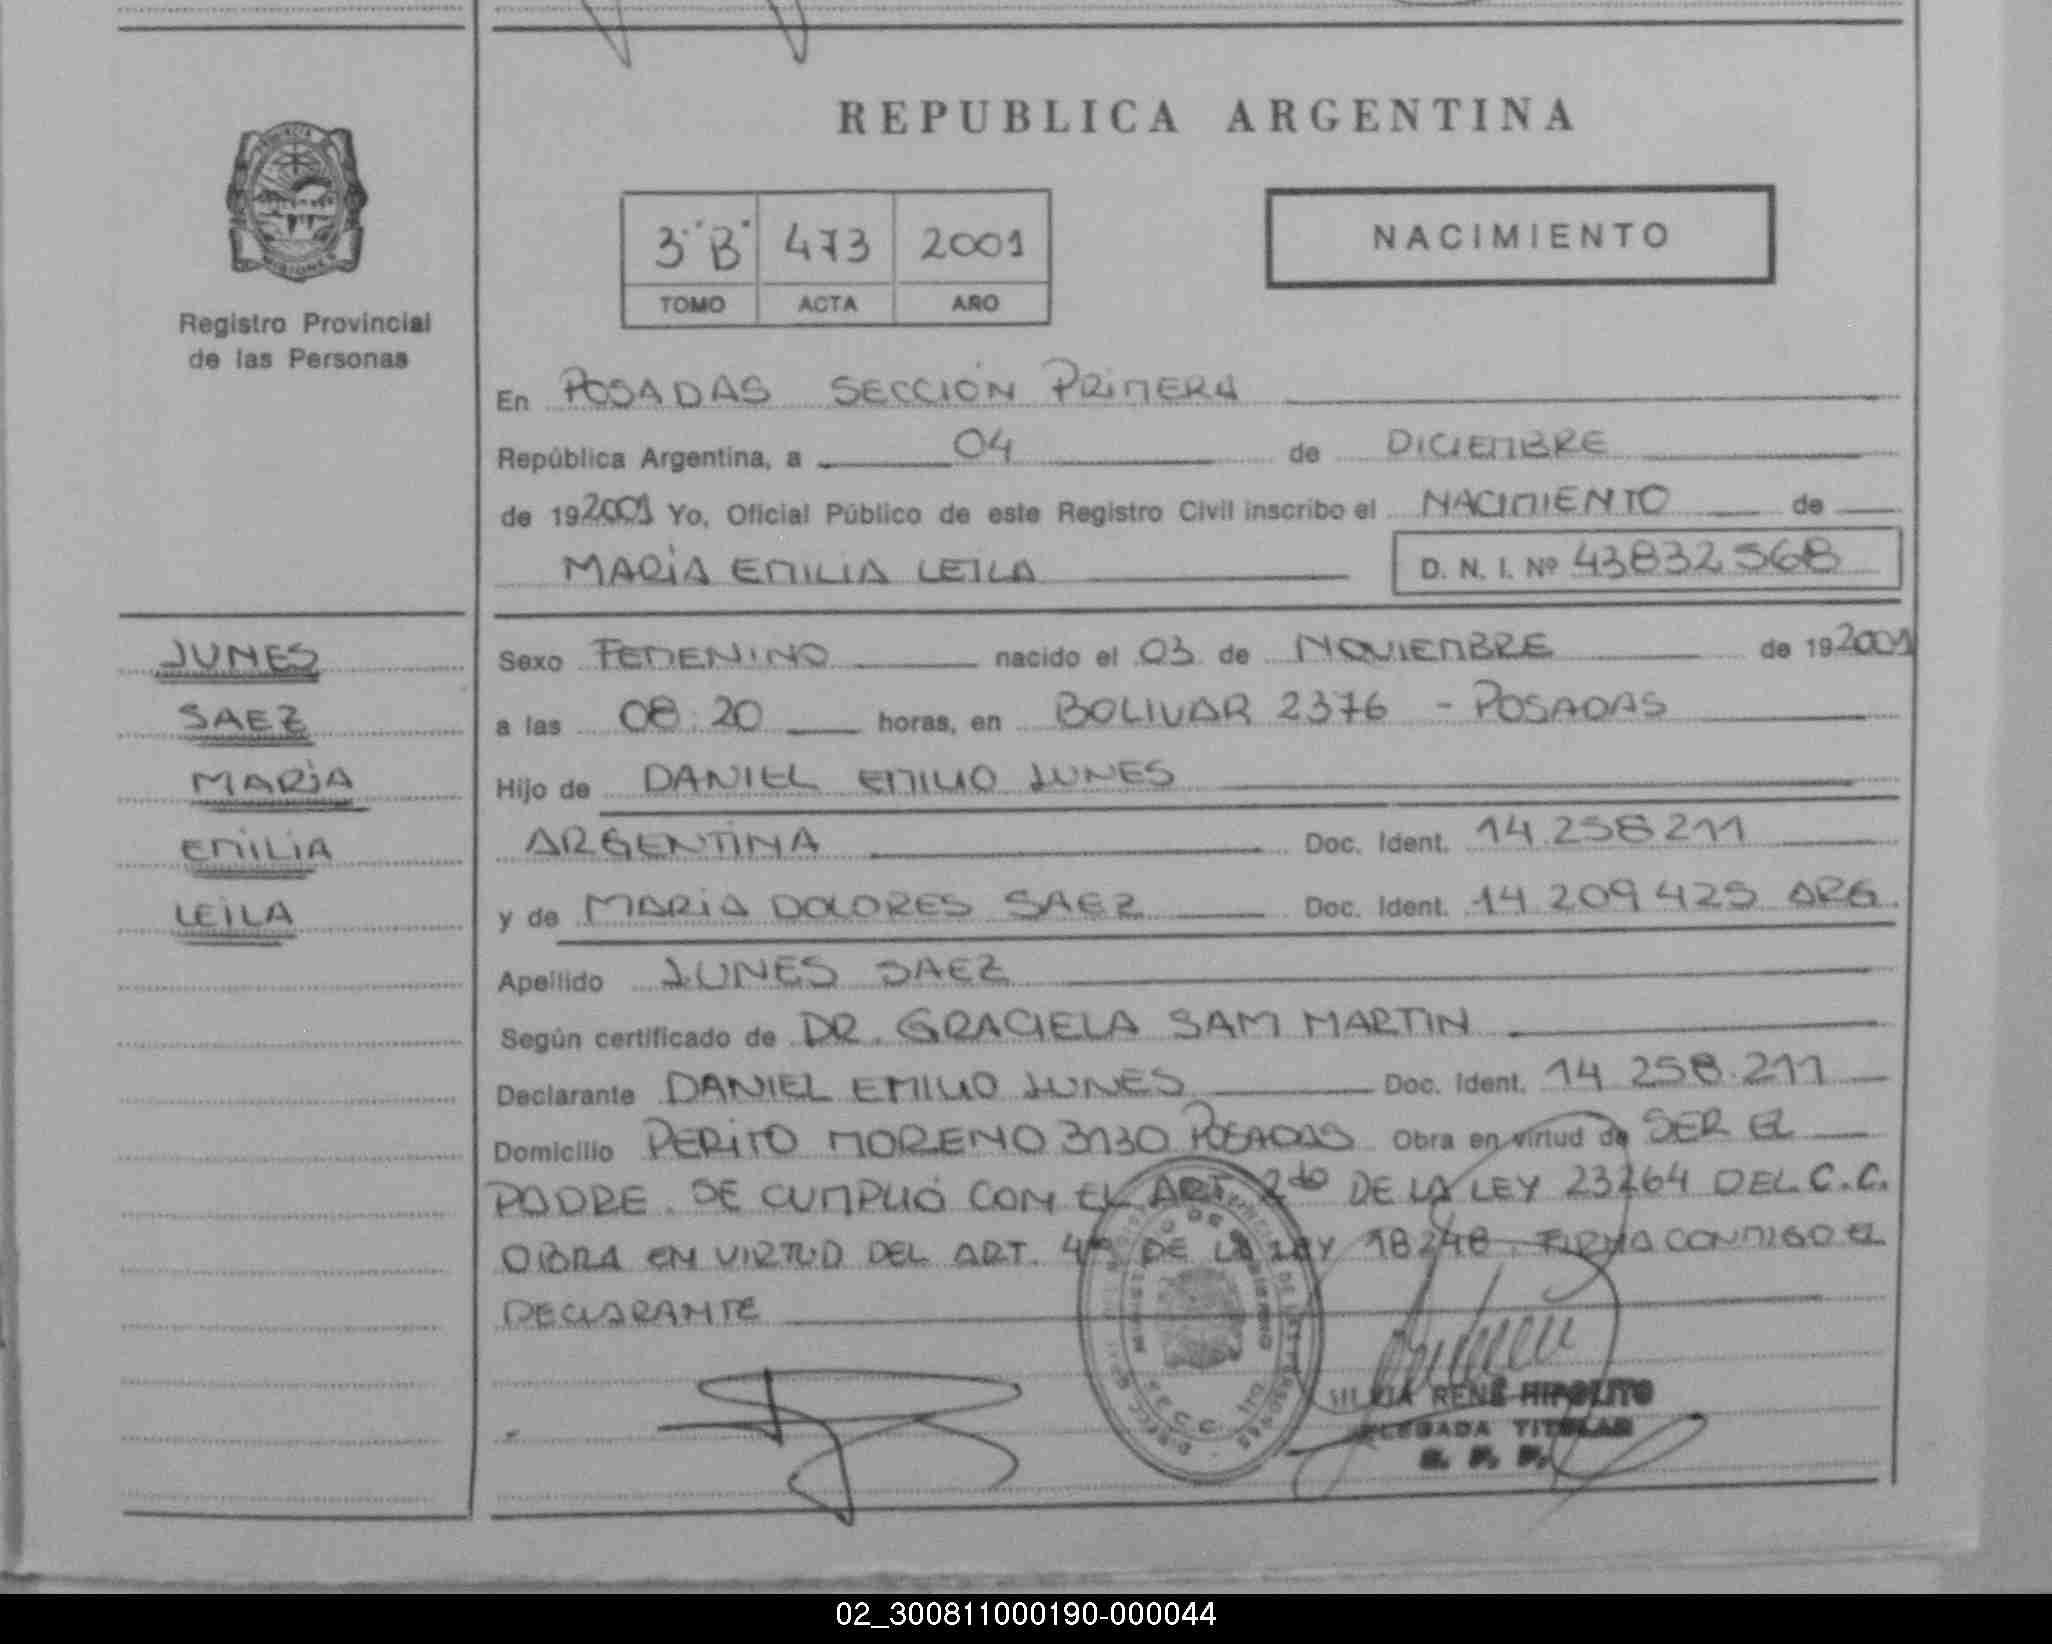 REPUBLICA ARGENTINA
3 "B" 473 2001
TOMO ACTA AÑO
NACIMIENTO
Registro Provincial
de las Personas
En POSADAS SECCIÓN PRIMERA
República Argentina, a 04 de DICIEMBRE
de 192001 Yo, Oficial Público de este Registro Civil inscribo el NACIMIENTO de
MARÍA EMILIA LEILA D. N. I. Nº 43832568
JUNES
SAEZ
MARÍA
EMILIA
LEILA
Sexo FEMENINO nacido el 03 de NOVIEMBRE de 192001
a las 08:20 horas, en BOLIVAR 2376 - POSADAS
Hijo de DANIEL EMILIO JUNES
ARGENTINA Doc. Ident. 14.258.211
y de MARÍA DOLORES SAEZ Doc. Ident. 14 209 425 ARG.
Apellido JUNES SAEZ
Según certificado de DR. GRACIELA SAM MARTIN
Declarante DANIEL EMILIO JUNES Doc. Ident. 14 258.211
Domicilio PERITO MORENO 3130 POSADAS Obra en virtud de SER EL
PADRE. SE CUMPLIÓ CON EL ART 2do DE LA LEY 23264 DEL C.C.
OBRA EN VIRTUD DEL ART. 4to DE LA LEY 18248. FIRMA CONMIGO EL
DECLARANTE
SILVIA RENÉ HIPOLITO
DELEGADA TITULAR
R. P. P.
02_300811000190-000044